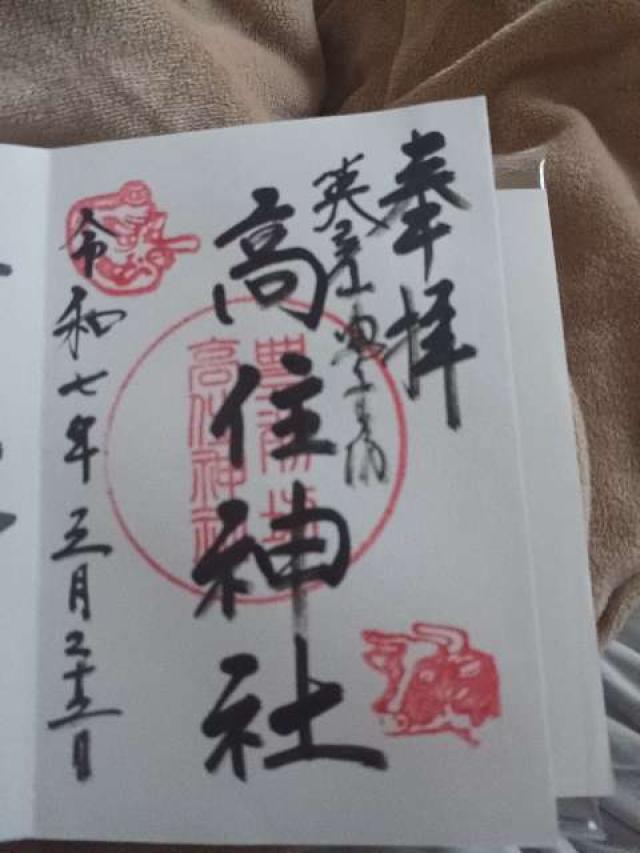 奉拝
英彦山豊前坊
高住神社
豊前坊
高住神社
令和七年三月二十三日